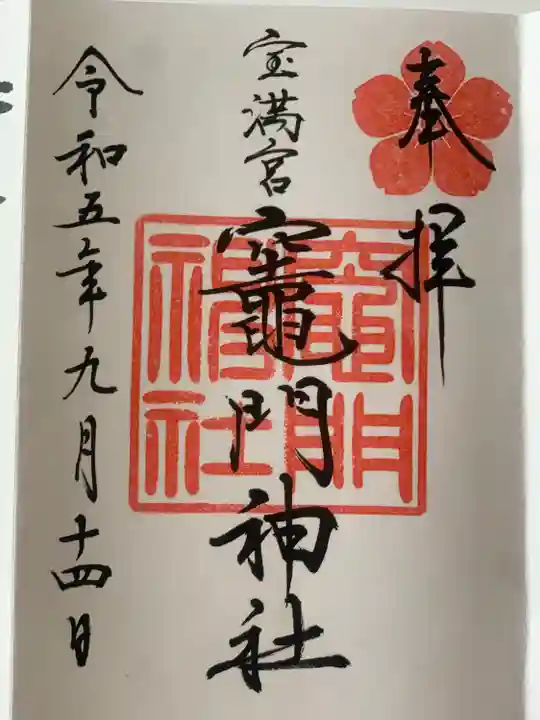 奉拝
宝満宮
竈門神社
竈門神社
令和五年九月十四日